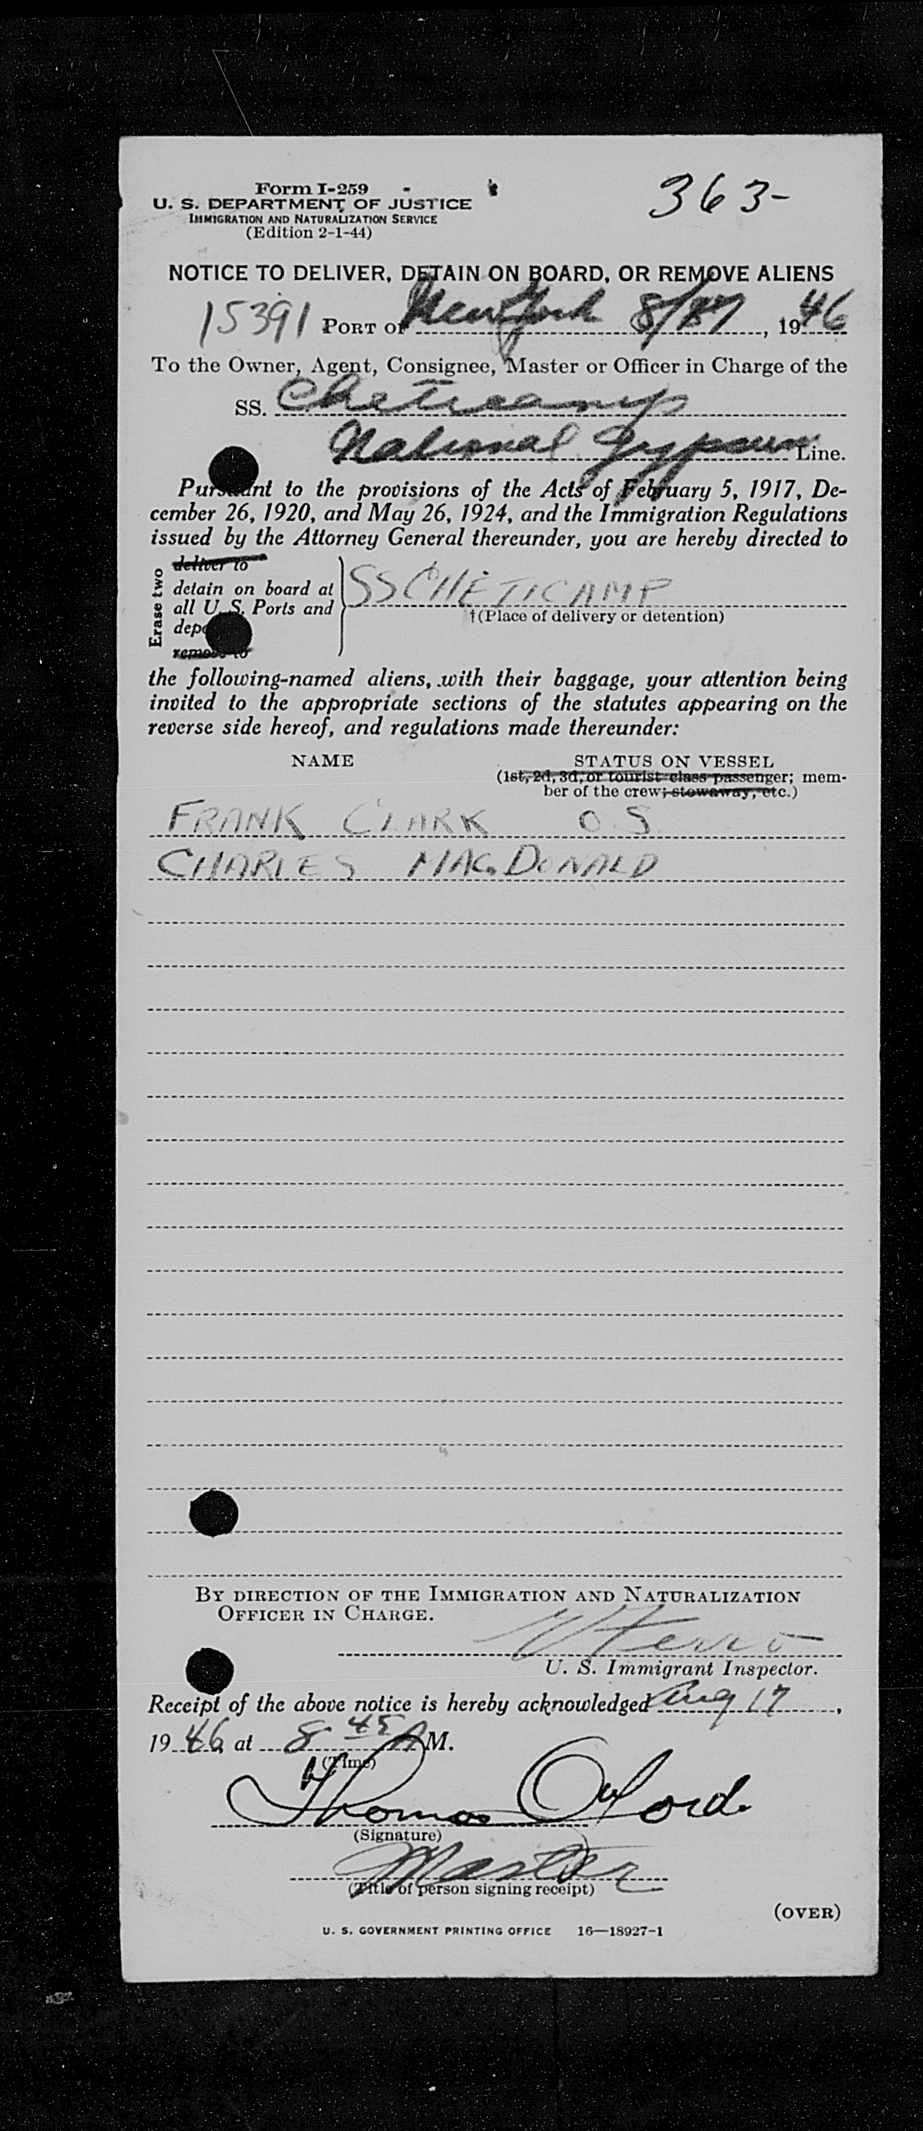 Form I-259
363-
U. S. DEPARTMENT OF JUSTICE
IMMIGRATION AND NATURALIZATION SERVICE
(Edition 2-1-44)
NOTICE TO DELIVER, DETAIN ON BOARD, OR REMOVE ALIENS
15391 PORT OF New York 8/17, 1946
To the Owner, Agent, Consignee, Master or Officer in Charge of the
SS. Cheticamp
National Gypsum Line.
Pursuant to the provisions of the Acts of February 5, 1917, De-
cember 26, 1920, and May 26, 1924, and the Immigration Regulations
issued by the Attorney General thereunder, you are hereby directed to
Erase two
deliver to
detain on board at
all U. S. Ports and
remove to
SS CHETICAMP
†(Place of delivery or detention)
the following-named aliens, with their baggage, your attention being
invited to the appropriate sections of the statutes appearing on the
reverse side hereof, and regulations made thereunder:
NAME STATUS ON VESSEL
(1st, 2d, 3d, or tourist class passenger; mem-
ber of the crew; stowaway, etc.)
FRANK CLARK O.S.
CHARLES MACDONALD
BY DIRECTION OF THE IMMIGRATION AND NATURALIZATION
OFFICER IN CHARGE.
U. S. Immigrant Inspector.
Receipt of the above notice is hereby acknowledged Aug 17,
1946 at 8 45 A M.
(Time)
Thomas
(Signature)
Master
(Title of person signing receipt)
(OVER)
U. S. GOVERNMENT PRINTING OFFICE 16—18927-1